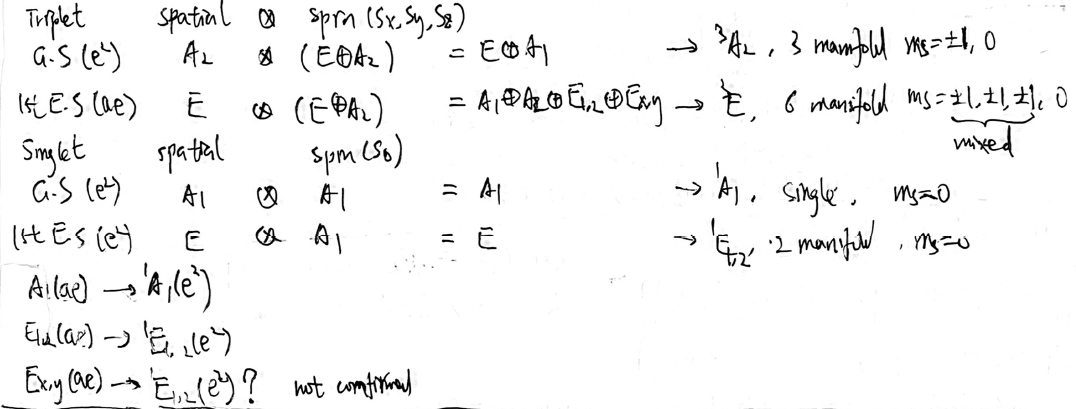 Triplet spatial ⊗ spin (Sx, Sy, Sz)
G.S (e²) A₂ ⊗ (E⊕A₂) = E⊕A₁ → ³A₂, 3 manifold ms=±1, 0
1st E.S (ae) E ⊗ (E⊕A₂) = A₁⊕A₂⊕E₁,₂⊕Ex,y → ³E, 6 manifold ms=±1, ±1, ±1, 0
mixed
Singlet spatial spin (S₀)
G.S (e²) A₁ ⊗ A₁ = A₁ → ¹A₁, single, ms=0
1st E.S (e²) E ⊗ A₁ = E → ¹E₁,₂, 2 manifold, ms=0
A₁(ae) → ¹A₁(e²)
E₁,₂(ae) → ¹E₁,₂(e²)
Ex,y(ae) → ¹E₁,₂(e²)? not confirmed